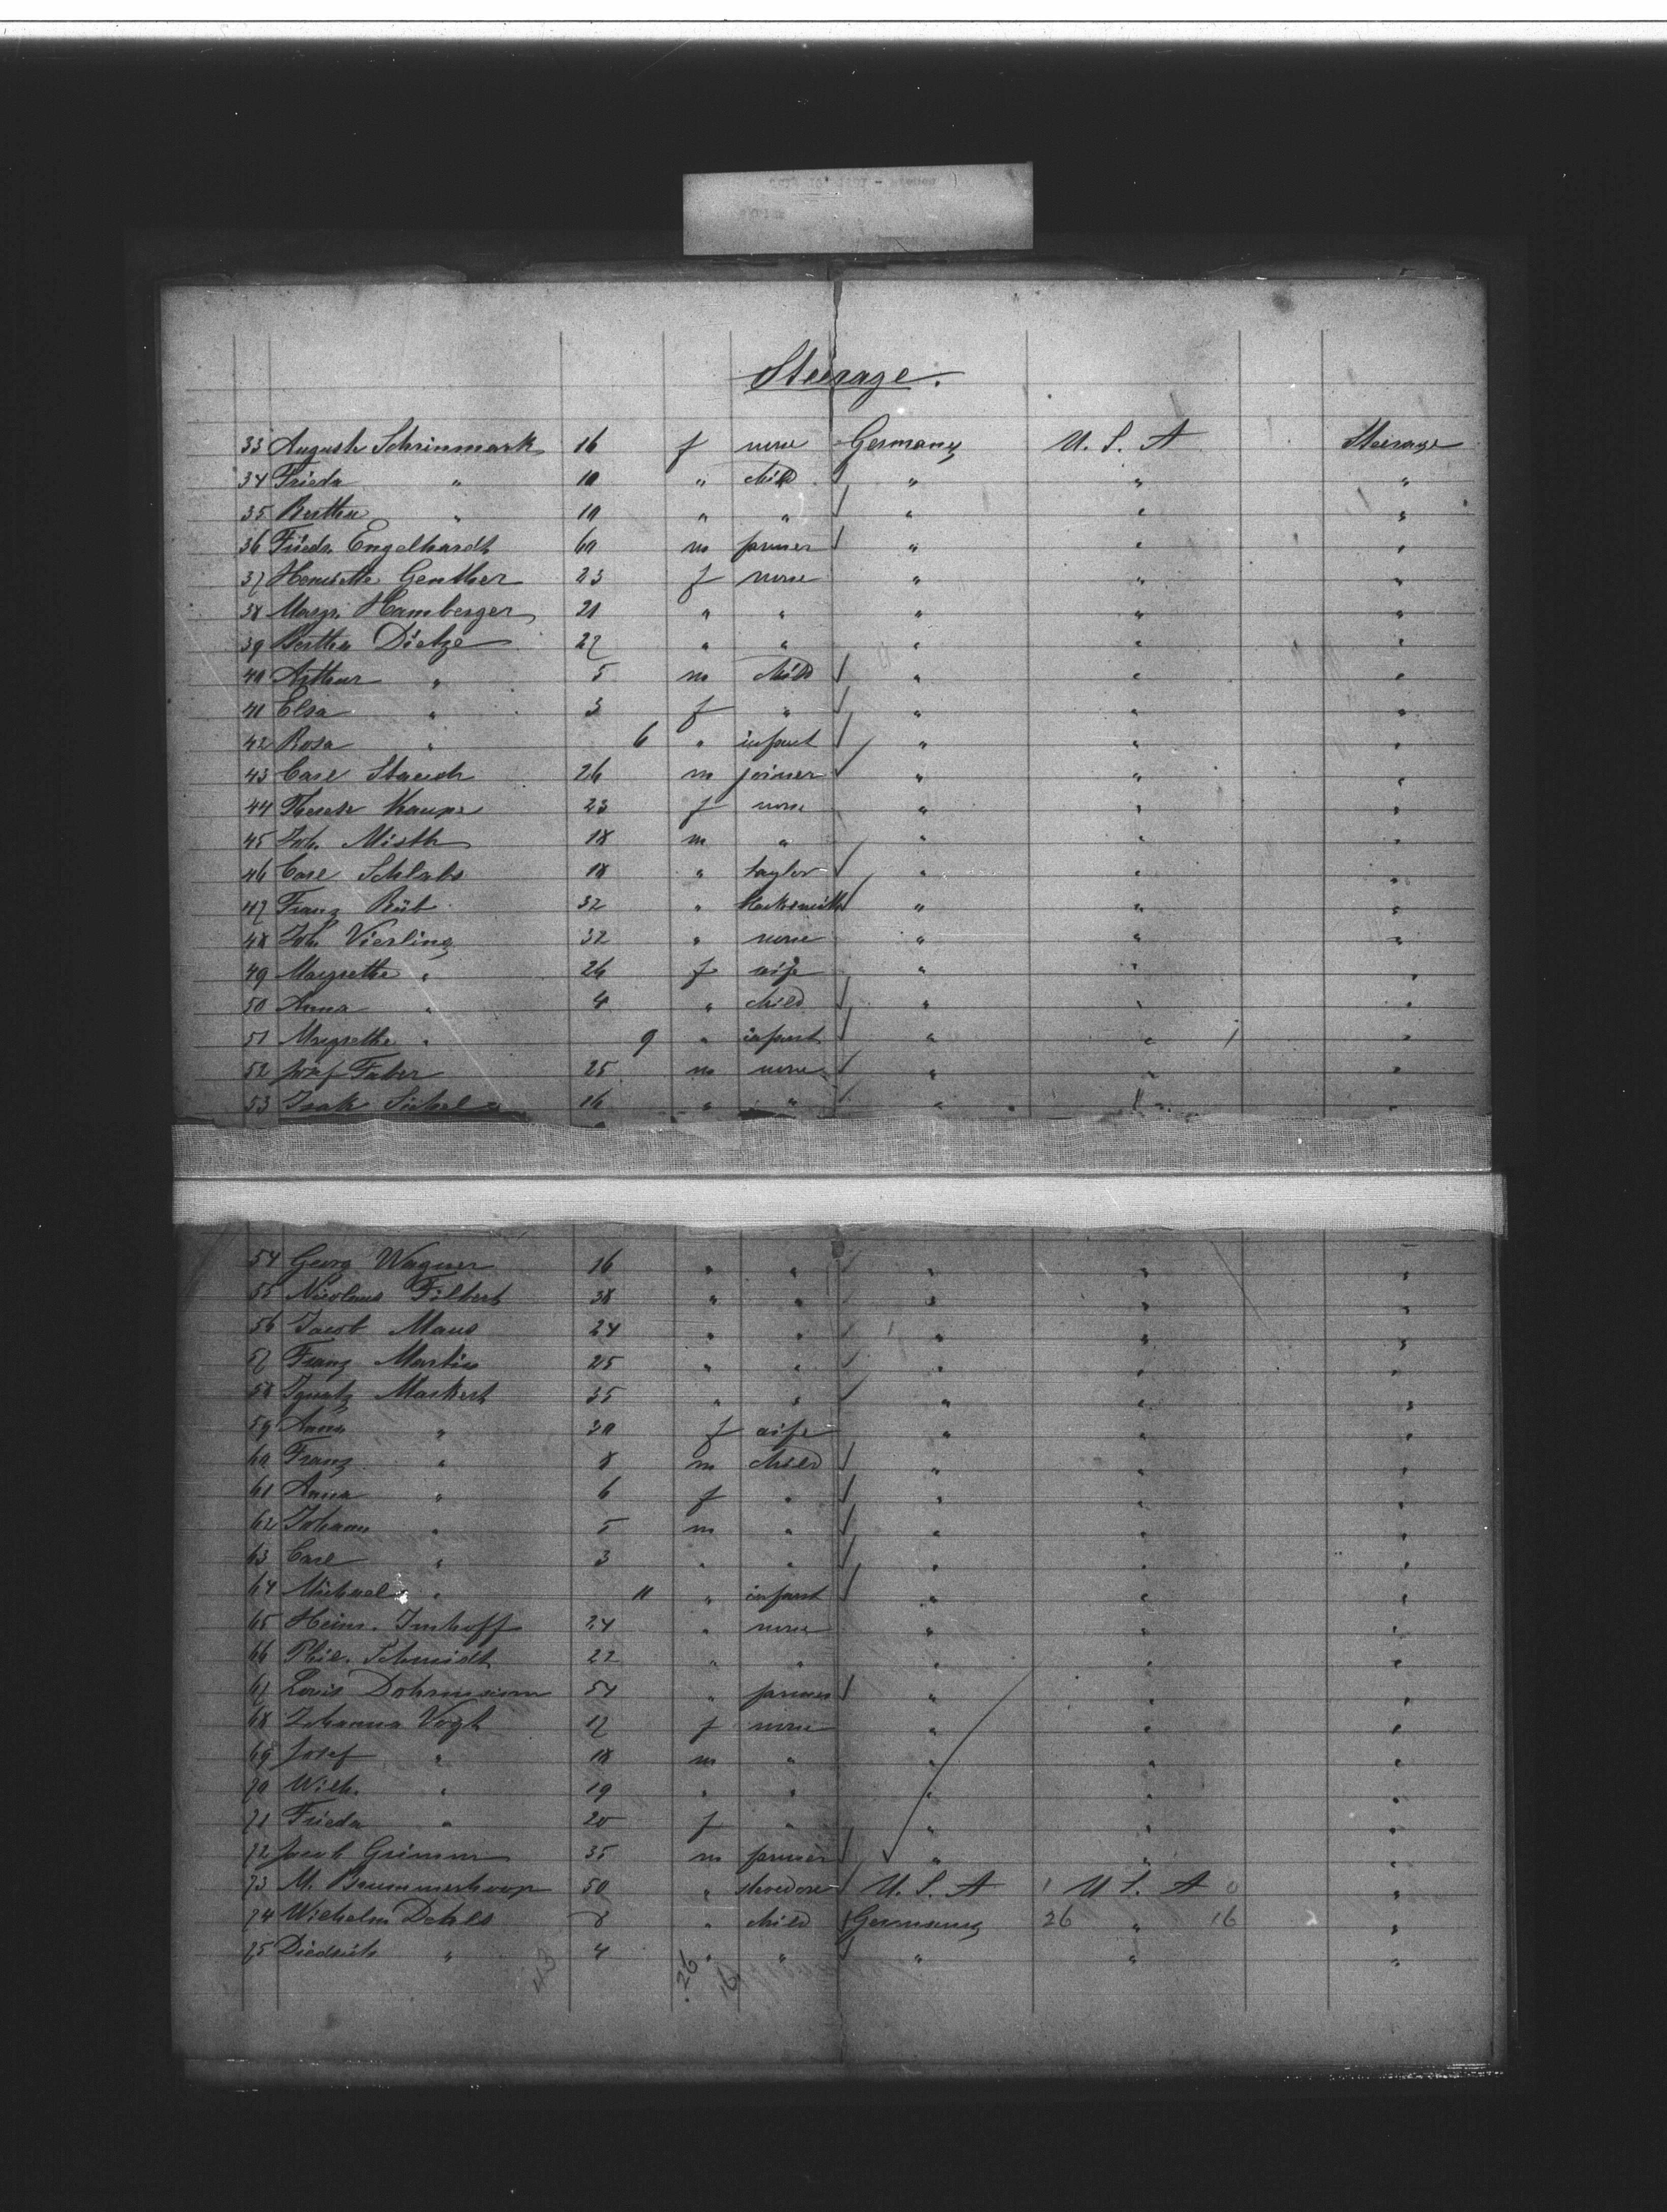 Steerage.
33 Auguste Schrinmark 16 f none Germany U. S. A Steerage
34 Frieda " 10 " child " " "
35 Bertha " 10 " " " " "
36 Friedr. Engelhardt 60 m farmer " " "
37 Henriette Genther 23 f none " " "
38 Margr. Hamberger 20 " " " " "
39 Bertha Dietze 27 " " " " "
40 Arthur " 5 m child " " "
41 Elsa " 3 f " " " "
42 Rosa " 6 " infant " " "
43 Carl Stauch 26 m joiner " " "
44 Therese Kaupe 23 f none " " "
45 Joh. Misth 18 m " " " "
46 Carl Schlabs 18 " taylor " " "
47 Franz Rüb 32 " blacksmith " " "
48 Joh. Vierling 32 " none " " "
49 Margrethe " 26 f wife " " "
50 Anna " 4 " child " " "
51 Margrethe " 9 " infant " " "
52 Josef Faber 25 m none " " "
53 Isak Sichel 16 " " " " "
54 Georg Wagner 16 " " " " "
55 Nicolaus Filbert 38 " " " " "
56 Jacob Maus 24 " " " " "
57 Franz Martin 25 " " " " "
58 Ignatz Markert 35 " " " " "
59 Anna " 30 f wife " " "
60 Franz " 8 m child " " "
61 Anna " 6 f " " " "
62 Johann " 5 m " " " "
63 Carl " 3 " " " " "
64 Michael " 11 " infant " " "
65 Heinr. Imhoff 24 " none " " "
66 Phil. Schmidt 22 " " " " "
67 Louis Dohrmann 54 " farmer " " "
68 Johanna Vogt 17 f none " " "
69 Josef " 18 m " " " "
70 Wilh. " 19 " " " " "
71 Frieda " 20 f " " " "
72 Jacob Grimm 35 m farmer " " "
73 M. Brummerhoop 50 " U. S. A 1 U. S. A 0 "
74 Wilhelm Dehls 8 " child Germany 26 " 16 "
75 Diedrich " 4 " " " " "
43 26 16